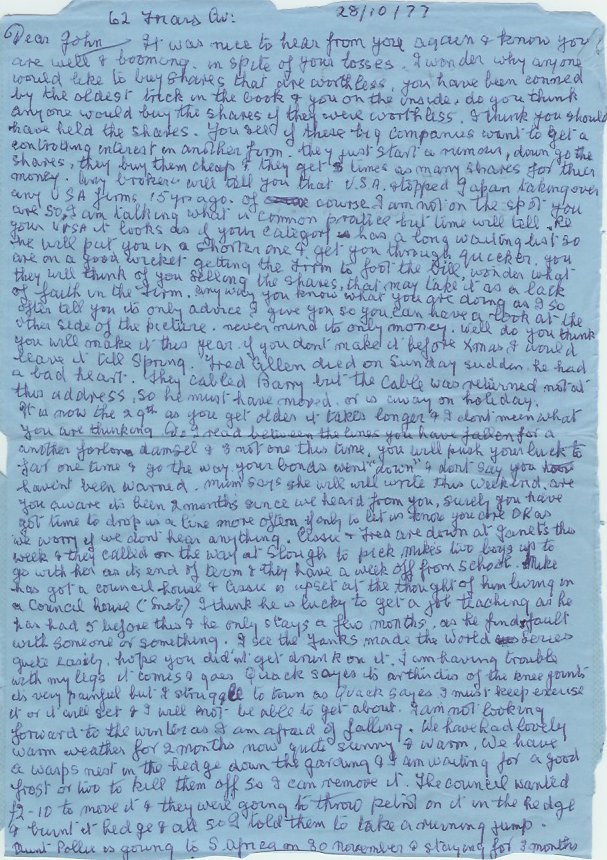 62 Friars Av: 28/10/77
Dear John It was nice to hear from you again & know you
are well & booming. in spite of your losses. I wonder why anyone
would like to buy shares that are worthless. you have been conned
by the oldest trick in the book & you on the inside. do you think
anyone would buy the shares if they were worthless. I think you should
have held the shares. You see if these big companies want to get a
controlling interest in another firm. they just start a rumour, down go the
shares, they buy them cheap & they get 3 times as many shares for their
money. Any broker will tell you that USA. stopped Japan taking over
any USA firms 15 yrs ago. of course I am not on the spot you
are so I am talking what is common pratice but time will tell. Re
your VISA it looks as if your category has a long waiting list so
he will put you in a shorter one & get you through quicker. you
are on a good wicket getting the firm to foot the bill, wonder what
they will think of you selling the shares, that may take it as a lack
of faith in the firm. anyway you know what you are doing as I so
often tell you its only advice I give you so you can have a look at the
other side of the picture. never mind its only money. well do you think
you will make it this year. if you dont make it before Xmas, I would
leave it till Spring. Fred Allen died on Sunday sudden. he had
a bad heart. They cabled Barry but the cable was returned not at
this address, so he must have moved. or is away on holiday.
It is now the 29th as you get older it takes longer & I dont mean what
you are thinking of. I read between the lines you have fallen for a
another forlorn damsel & 3 not one this time, you will push your luck to
far one time & go the way your bonds went "down" & dont say you
havent been warned. mum says she will will write this weekend, are
you aware its been 2 months since we heard from you, surely you have
got time to drop us a line more often if only to let us know you are OK as
we worry if we dont hear anything. Cissie & Frea are down at Janets this
week & they called on the way at Slough to pick mikes two boys up to
go with her as its end of term & they have a week off from school. Mike
has got a council house & Cissie is upset at the thought of him living in
a Council house (Snob) I think he is lucky to get a job teaching as he
has had 5 before this & he only stays a few months, as he finds fault
with someone or something. I see the Yanks made the World series
quite easily, hope you did'nt get drunk on it. I am having trouble
with my legs it comes & goes Quack sayes its arthidies of the knee joints
its very painful but I struggle to town as Quack sayes I must keep exercise
it or it will set & I will not be able to get about. I am not looking
forward to the winter as I am afraid of falling. We have had lovely
warm weather for 2 months now quite sunny & warm. We have
a wasps nest in the hedge down the garding & I am waiting for a good
frost or two to kill them off so I can remove it. The council wanted
£2-10 to move it & they were going to throw petrol on it in the hedge
& burnt it hedge & all so I told them to take a running jump.
Aunt Pollie is going to S. Africa on 30 november & staying for 3 months